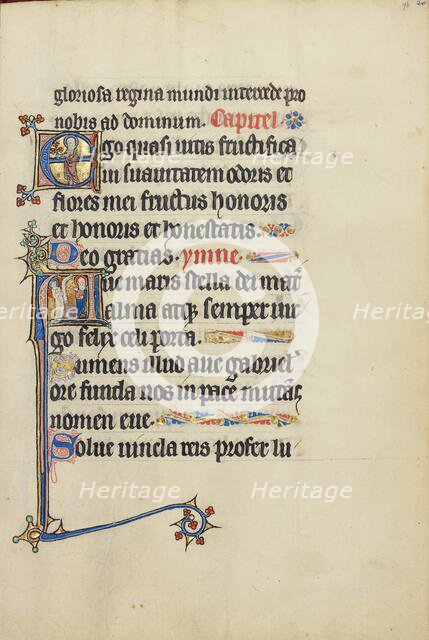 gloriosa regina mundi intercede pro
nobis ad dominum. Capitel
Ego quasi vitis fructifica
ui suavitatem odoris et
flores mei fructus honoris
et honoris et honestatis.
Deo gratias. ymne.
Aue maris stella dei mat
alma atq semper vir
go felix celi porta.
Sumens illud aue gabriel
ore funda nos in pace mutas
nomen eue.
Solue vincla reis profer lu
Heritage
Heritage
Heritage
Heritage
Heritage
Heritage
Heritage
Heritage
Heritage